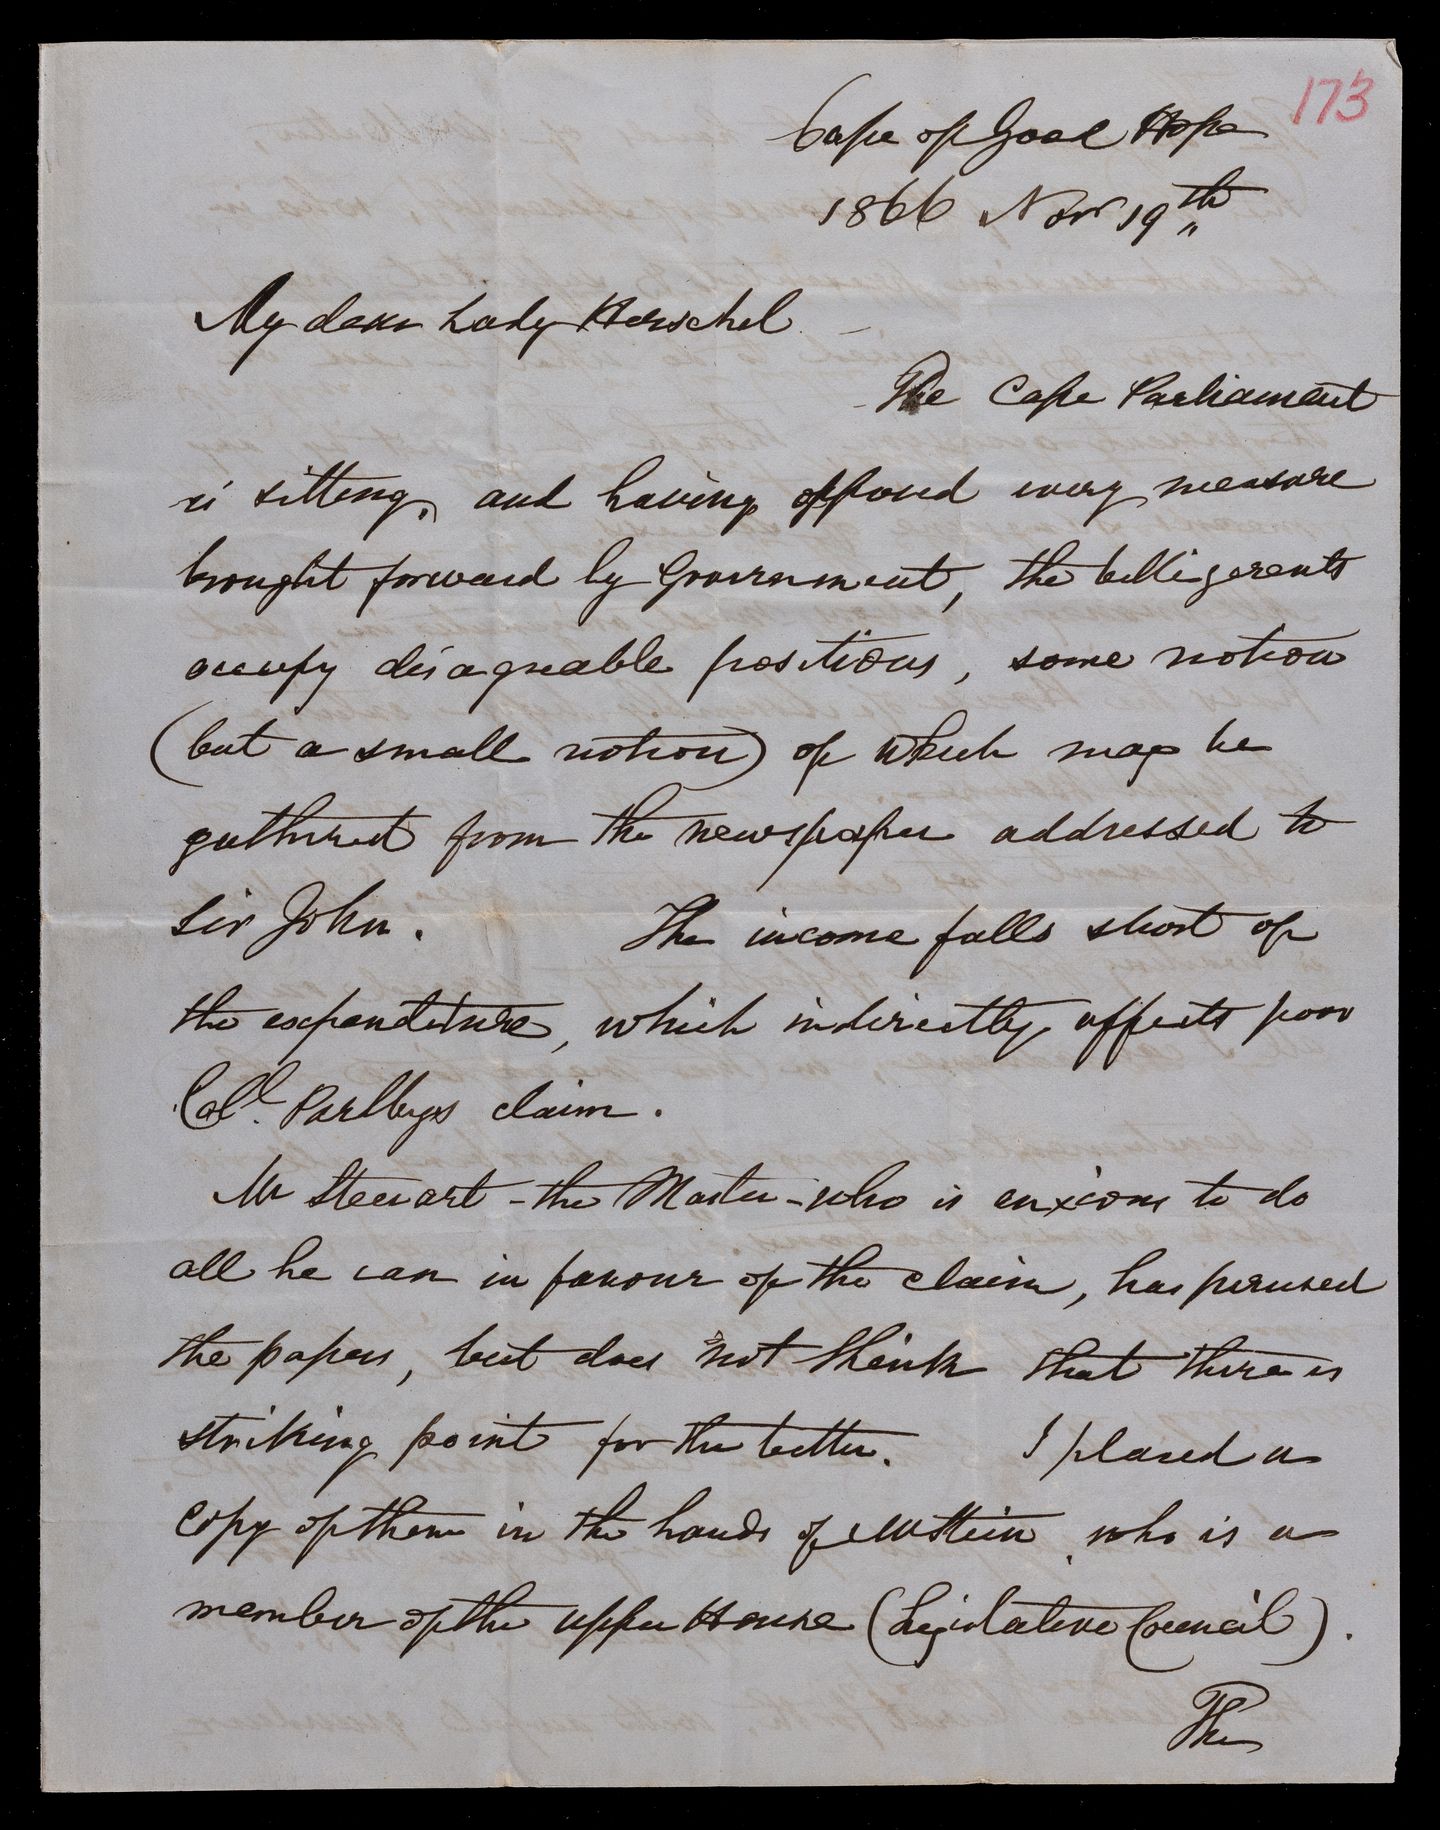 173
Cape of Good Hope
1866 Novr 19th
My dear Lady Herschel
The Cape Parliament
is sitting, and having opposed every measure
brought forward by Government, the belligerents
occupy disagreable positions, some notion
(but a small notion) of which may be
gathered from the newspaper addressed to
Sir John. The income falls short of
the expenditure, which indirectly affects poor
Coll. Parlbys claim.
Mr Stewart - the Master - who is anxious to do
all he can in favour of the claim, has perused
the papers, but does not think that there is
striking point for the better. I placed a
copy of them in the hands of Mr Stein, who is a
member of the upper House (Legislative Council).
The